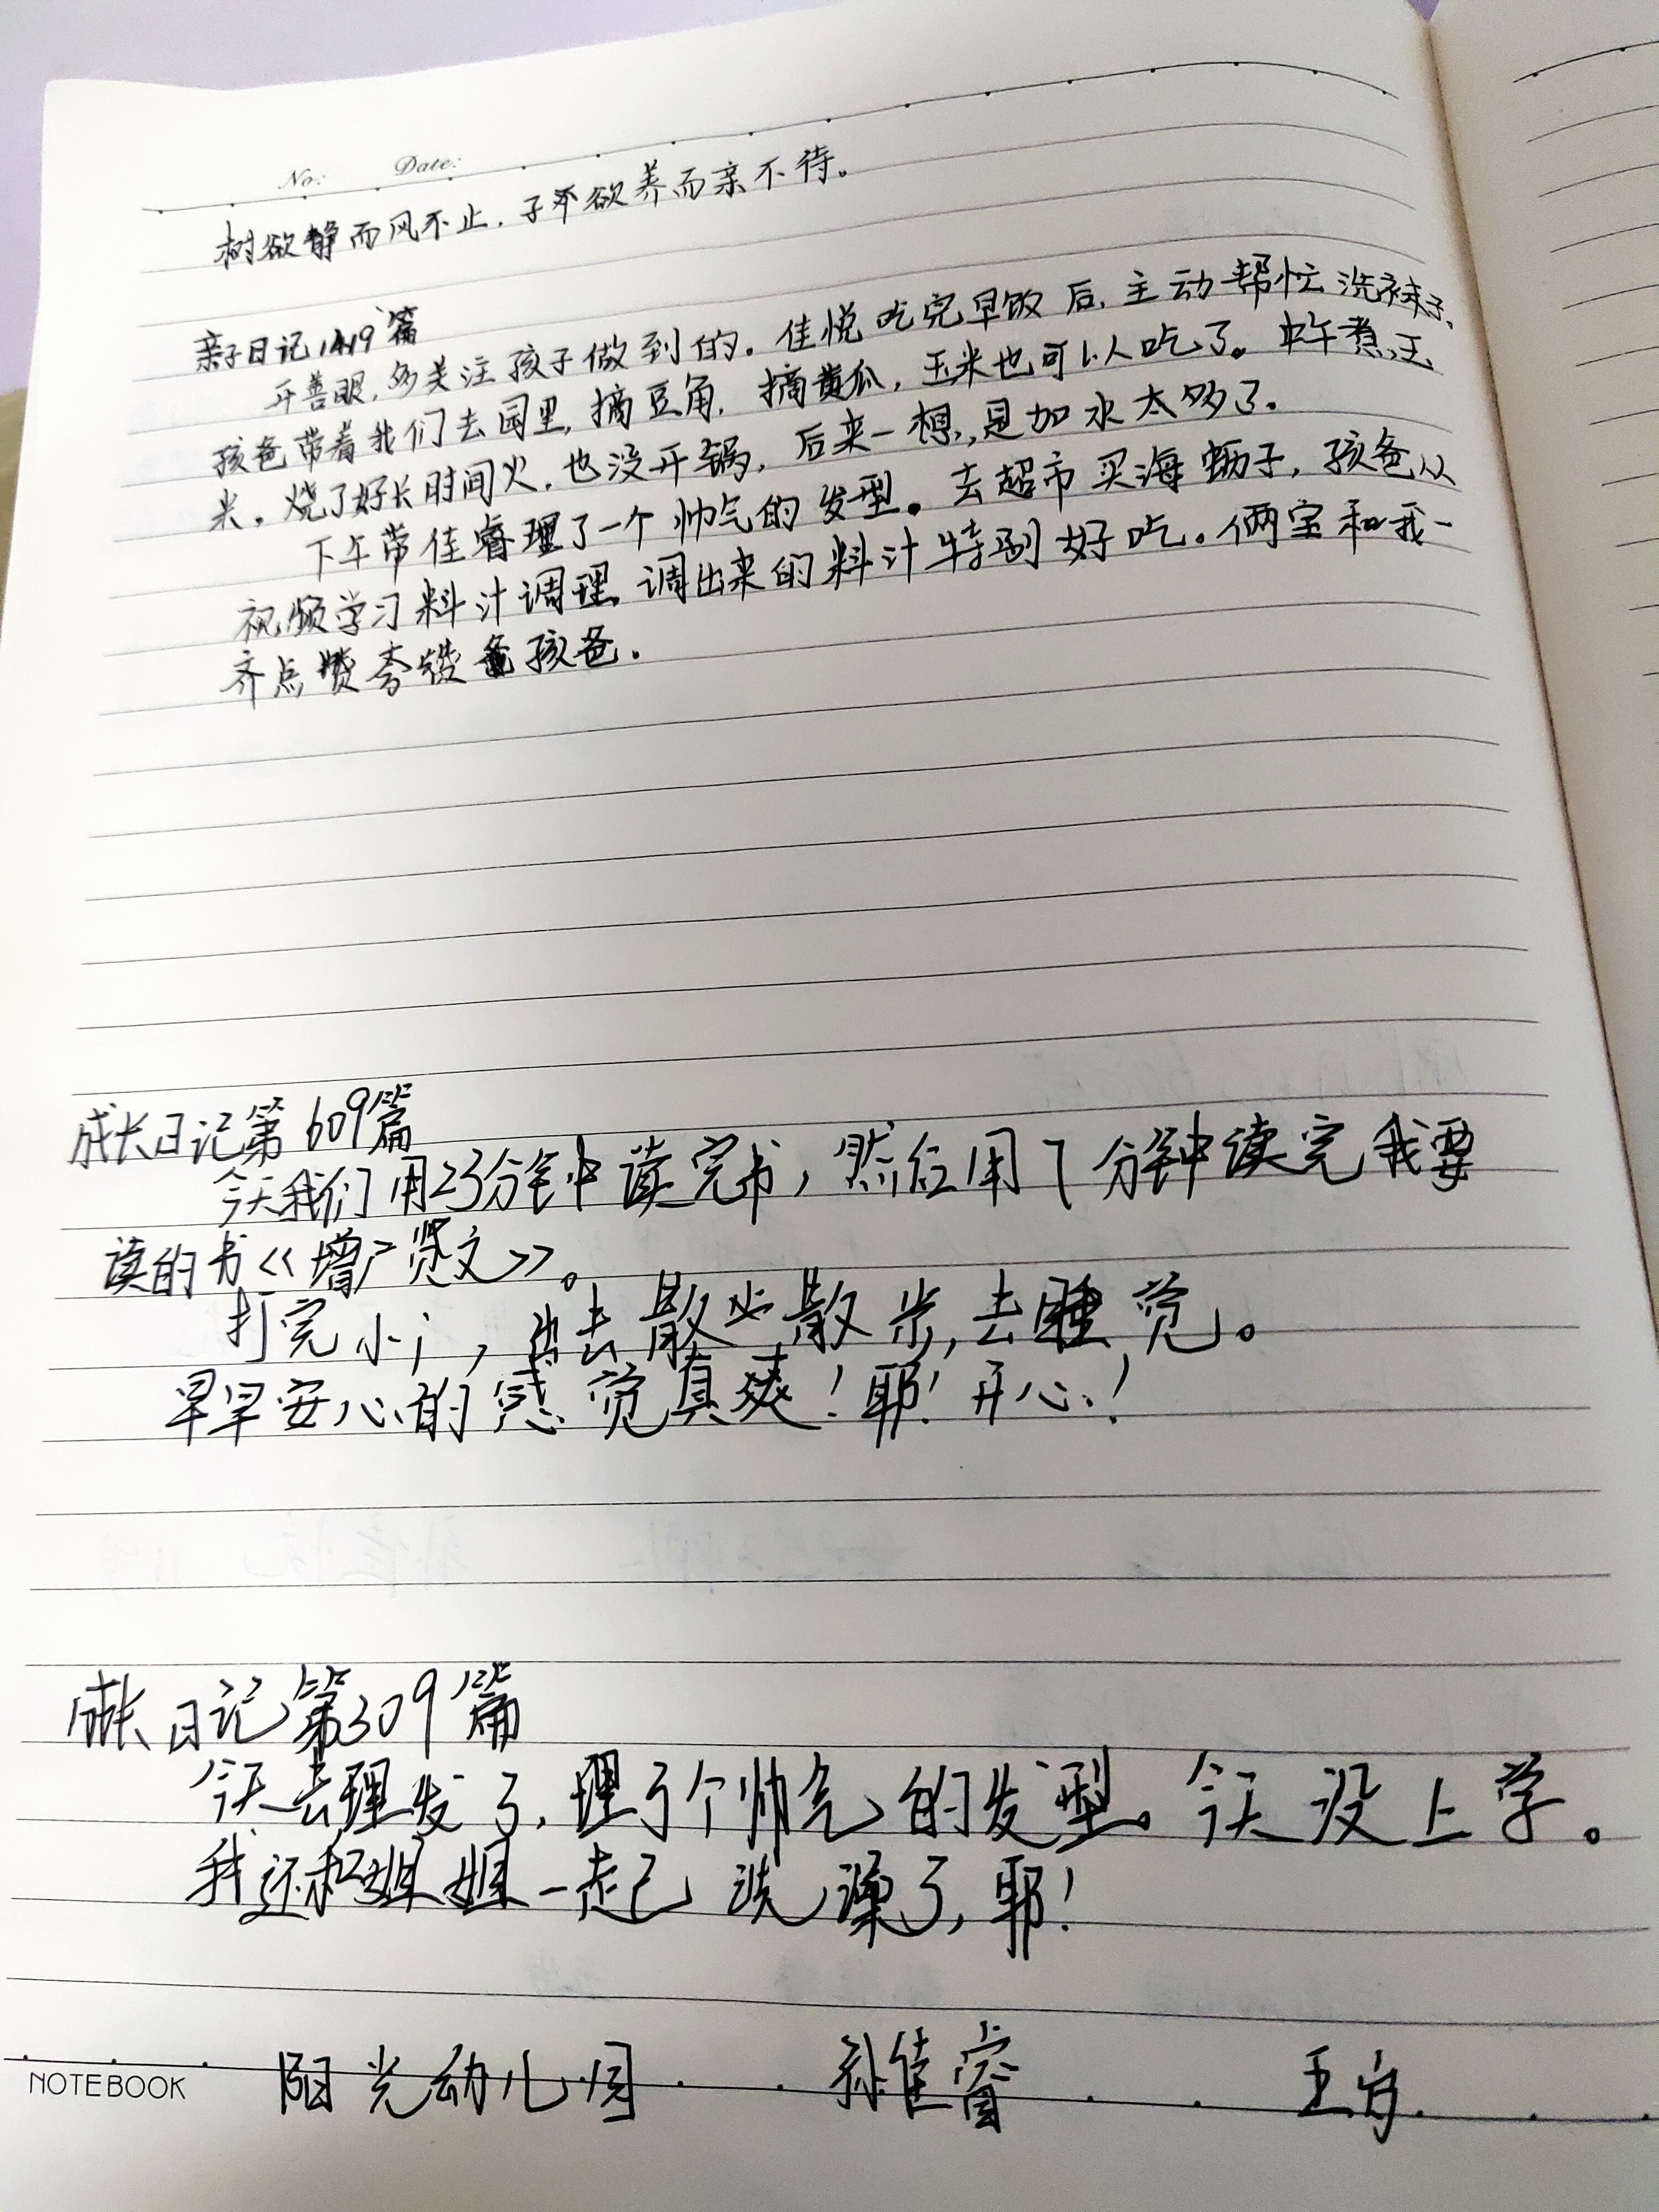 No: Date:
树欲静而风不止,子欲养而亲不待。
亲子日记1419篇
开善眼,多关注孩子做到的。佳悦吃完早饭后,主动帮忙洗袜子,
孩爸带着我们去园里,摘豆角,摘黄瓜,玉米也可以吃了。中午煮玉
米,烧了好长时间火,也没开锅,后来一想,是加水太多了。
下午带佳睿理了一个帅气的发型。去超市买海蛎子,孩爸从
视频学习料汁调理,调出来的料汁特别好吃。俩宝和我一
齐点赞夸赞孩爸。
成长日记第609篇
今天我们用23分钟读完书,然后用7分钟读完我要
读的书《增广贤文》。
打完小j,出去散步散步,去睡觉。
早早安心的感觉真爽!耶!开心!
成长日记第309篇
今天去理发了,理了个帅气的发型。今天没上学。
我还和姐姐一起洗澡了,耶!
NOTEBOOK 阳光幼儿园 孙佳睿 五岁